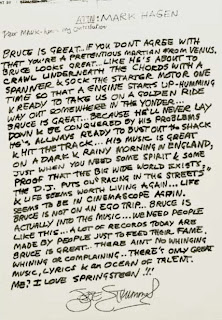 ATTN: MARK HAGEN
Dear Mark: here's my contribution
BRUCE IS GREAT.. IF YOU DONT AGREE WITH
THAT YOU'RE A PRETENTIOUS MARTIAN FROM VENUS.
BRUCE LOOKS GREAT.. LIKE HE'S ABOUT TO
CRAWL UNDERNEATH THE CHORDS WITH A
SPANNER & SOCK THE STARTER MOTOR ONE
TIME SO THAT A ENGINE STARTS UP-HUMMING
& READY TO TAKE US ON A GOLDEN RIDE
WAY OUT SOMEWHERE IN THE YONDER...
BRUCE IS GREAT.. BECAUSE HE'LL NEVER LAY
DOWN & BE CONQUERED BY HIS PROBLEMS
HE'S ALLWAYS READY TO BUST OUT THE SHACK
& HIT THE TRACK... HIS MUSIC IS GREAT
ON A DARK & RAINY MORNING IN ENGLAND,
JUST WHEN YOU NEED SOME SPIRIT & SOME
PROOF THAT THE BIG WIDE WORLD EXISTS,
THE D.J. PUTS ON "RACING IN THE STREETS"
& LIFE SEEMS WORTH LIVING AGAIN... LIFE
SEEMS TO BE IN CINEMASCOPE AGAIN.
BRUCE IS NOT ON AN EGO TRIP.. BRUCE IS
ACTUALLY INTO THE MUSIC...WE NEED PEOPLE
LIKE THIS.. A LOT OF RECORDS TODAY ARE
MADE BY PEOPLE JUST TO FEED THEIR FAME,
BRUCE IS GREAT.. THERE AIN'T NO WHINGING
WHINING OR COMPLAINING.. THERE'S ONLY GREAT
MUSIC, LYRICS & AN OCEAN OF TALENT.
ME? I LOVE SPRINGSTEEN !!
Joe Strummer